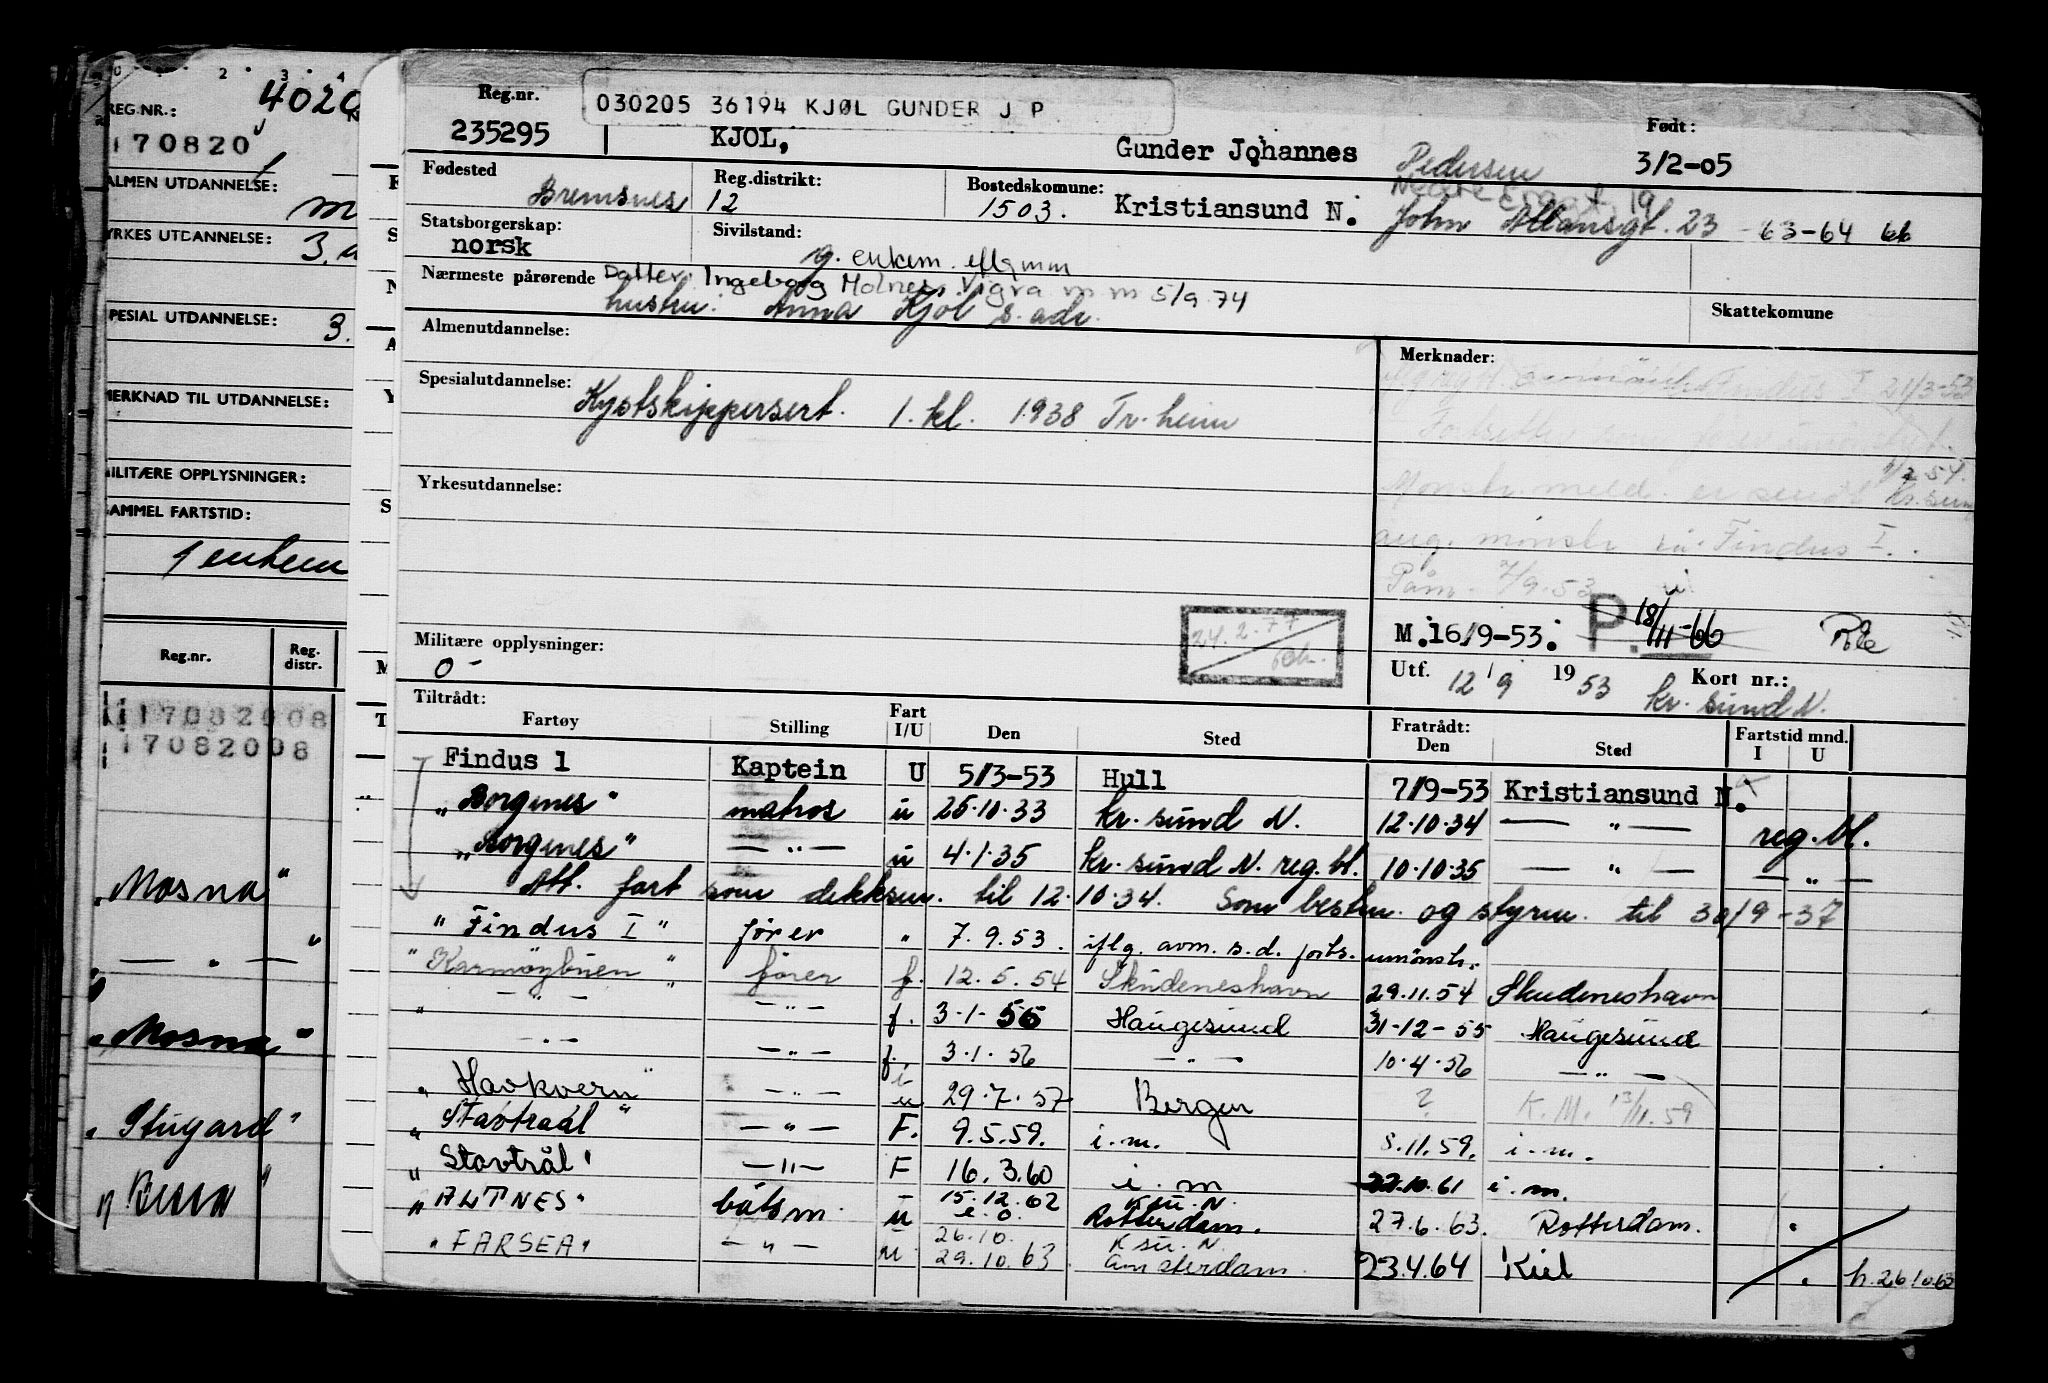 0 1 2 3 4
REG.NR.: 4020
170820
ALMEN UTDANNELSE:
m
YRKES UTDANNELSE: 3.
SPESIAL UTDANNELSE: 3.
MERKNAD TIL UTDANNELSE:
MILITÆRE OPPLYSNINGER:
SAMMEL FARTSTID:
Reg.nr. Reg. distr.
17082008
17082008
"Mosna"
— " —
"Mosna"
"Stugard"
Reg.nr. 030205 36194 KJØL GUNDER J P Født:
235295 KJOL, Gunder Johannes Pedersen 3/2-05
Fødested Bremsnes Reg.distrikt: 12 Bostedskomune: 1503. Kristiansund N. John Allansgt. 23 63-64 66
Statsborgerskap: norsk Sivilstand: g. enkem. iflg mm
Nærmeste pårørende Datter: Ingeborg Molnes Vigra m m 5/9.74
hustru: Anna Kjøl s. adr. Skattekomune
Almenutdannelse: Merknader:
Findus I 21/3-53
Spesialutdannelse: Kystskippersert. 1. kl. 1938 Tr.heim
Yrkesutdannelse:
Mønstr. meld. er sendt Kr.sund
ang. mønstr. Findus I.
Påm. 7/9.53
P. 18/11-66
24.2.77
Militære opplysninger: M.16/9-53.
0- Utf. 12/9 1953 Kort nr.:
Kr. sund N.
Tiltrådt: Fartøy Stilling Fart I/U Den Sted Fratrådt: Den Sted Fartstid mnd. I U
Findus 1 Kaptein U 5/3-53 Hull 7/9-53 Kristiansund N.
"Borgenes" matros u 25.10.33 kr. sund N. 12.10.34 — " — reg. bl.
"Borgenes" — " — u 4.1.35 kr. sund N. reg. bl. 10.10.35 — " — — " —
Att. fart som dekksm. til 12.10.34. Som bestm. og styrm. til 30/9-37
"Findus I" fører " 7.9.53. iflg. avm. s.d. forts. umönstr.
"Karmøybuen" fører f. 12.5.54 Skudeneshavn 29.11.54 Skudeneshavn
" — " — — " — f. 3-1-55 Haugesund 31-12-55 Haugesund
— " — — " — f. 3.1.56 — " — 10.4.56 — " —
"Havkvern" — " — i u 29.7.57 Bergen ? K.M. 13/11.59
"Stavtraal" — " — F. 9.5.59. i.m. 8.11.59. i.m.
"Stavtrål" — " — F 16.3.60 i.m 22.10.61 i.m.
"ALTNES" båtsm. u 15.12.62 e.o. Ksu. N. Rotterdam. 27.6.63. Rotterdam.
"FARSEA" — " — u. 26.10. 29.10.63 Ksu. N. Amsterdam. 23.4.64 Kiel h. 26.10.63